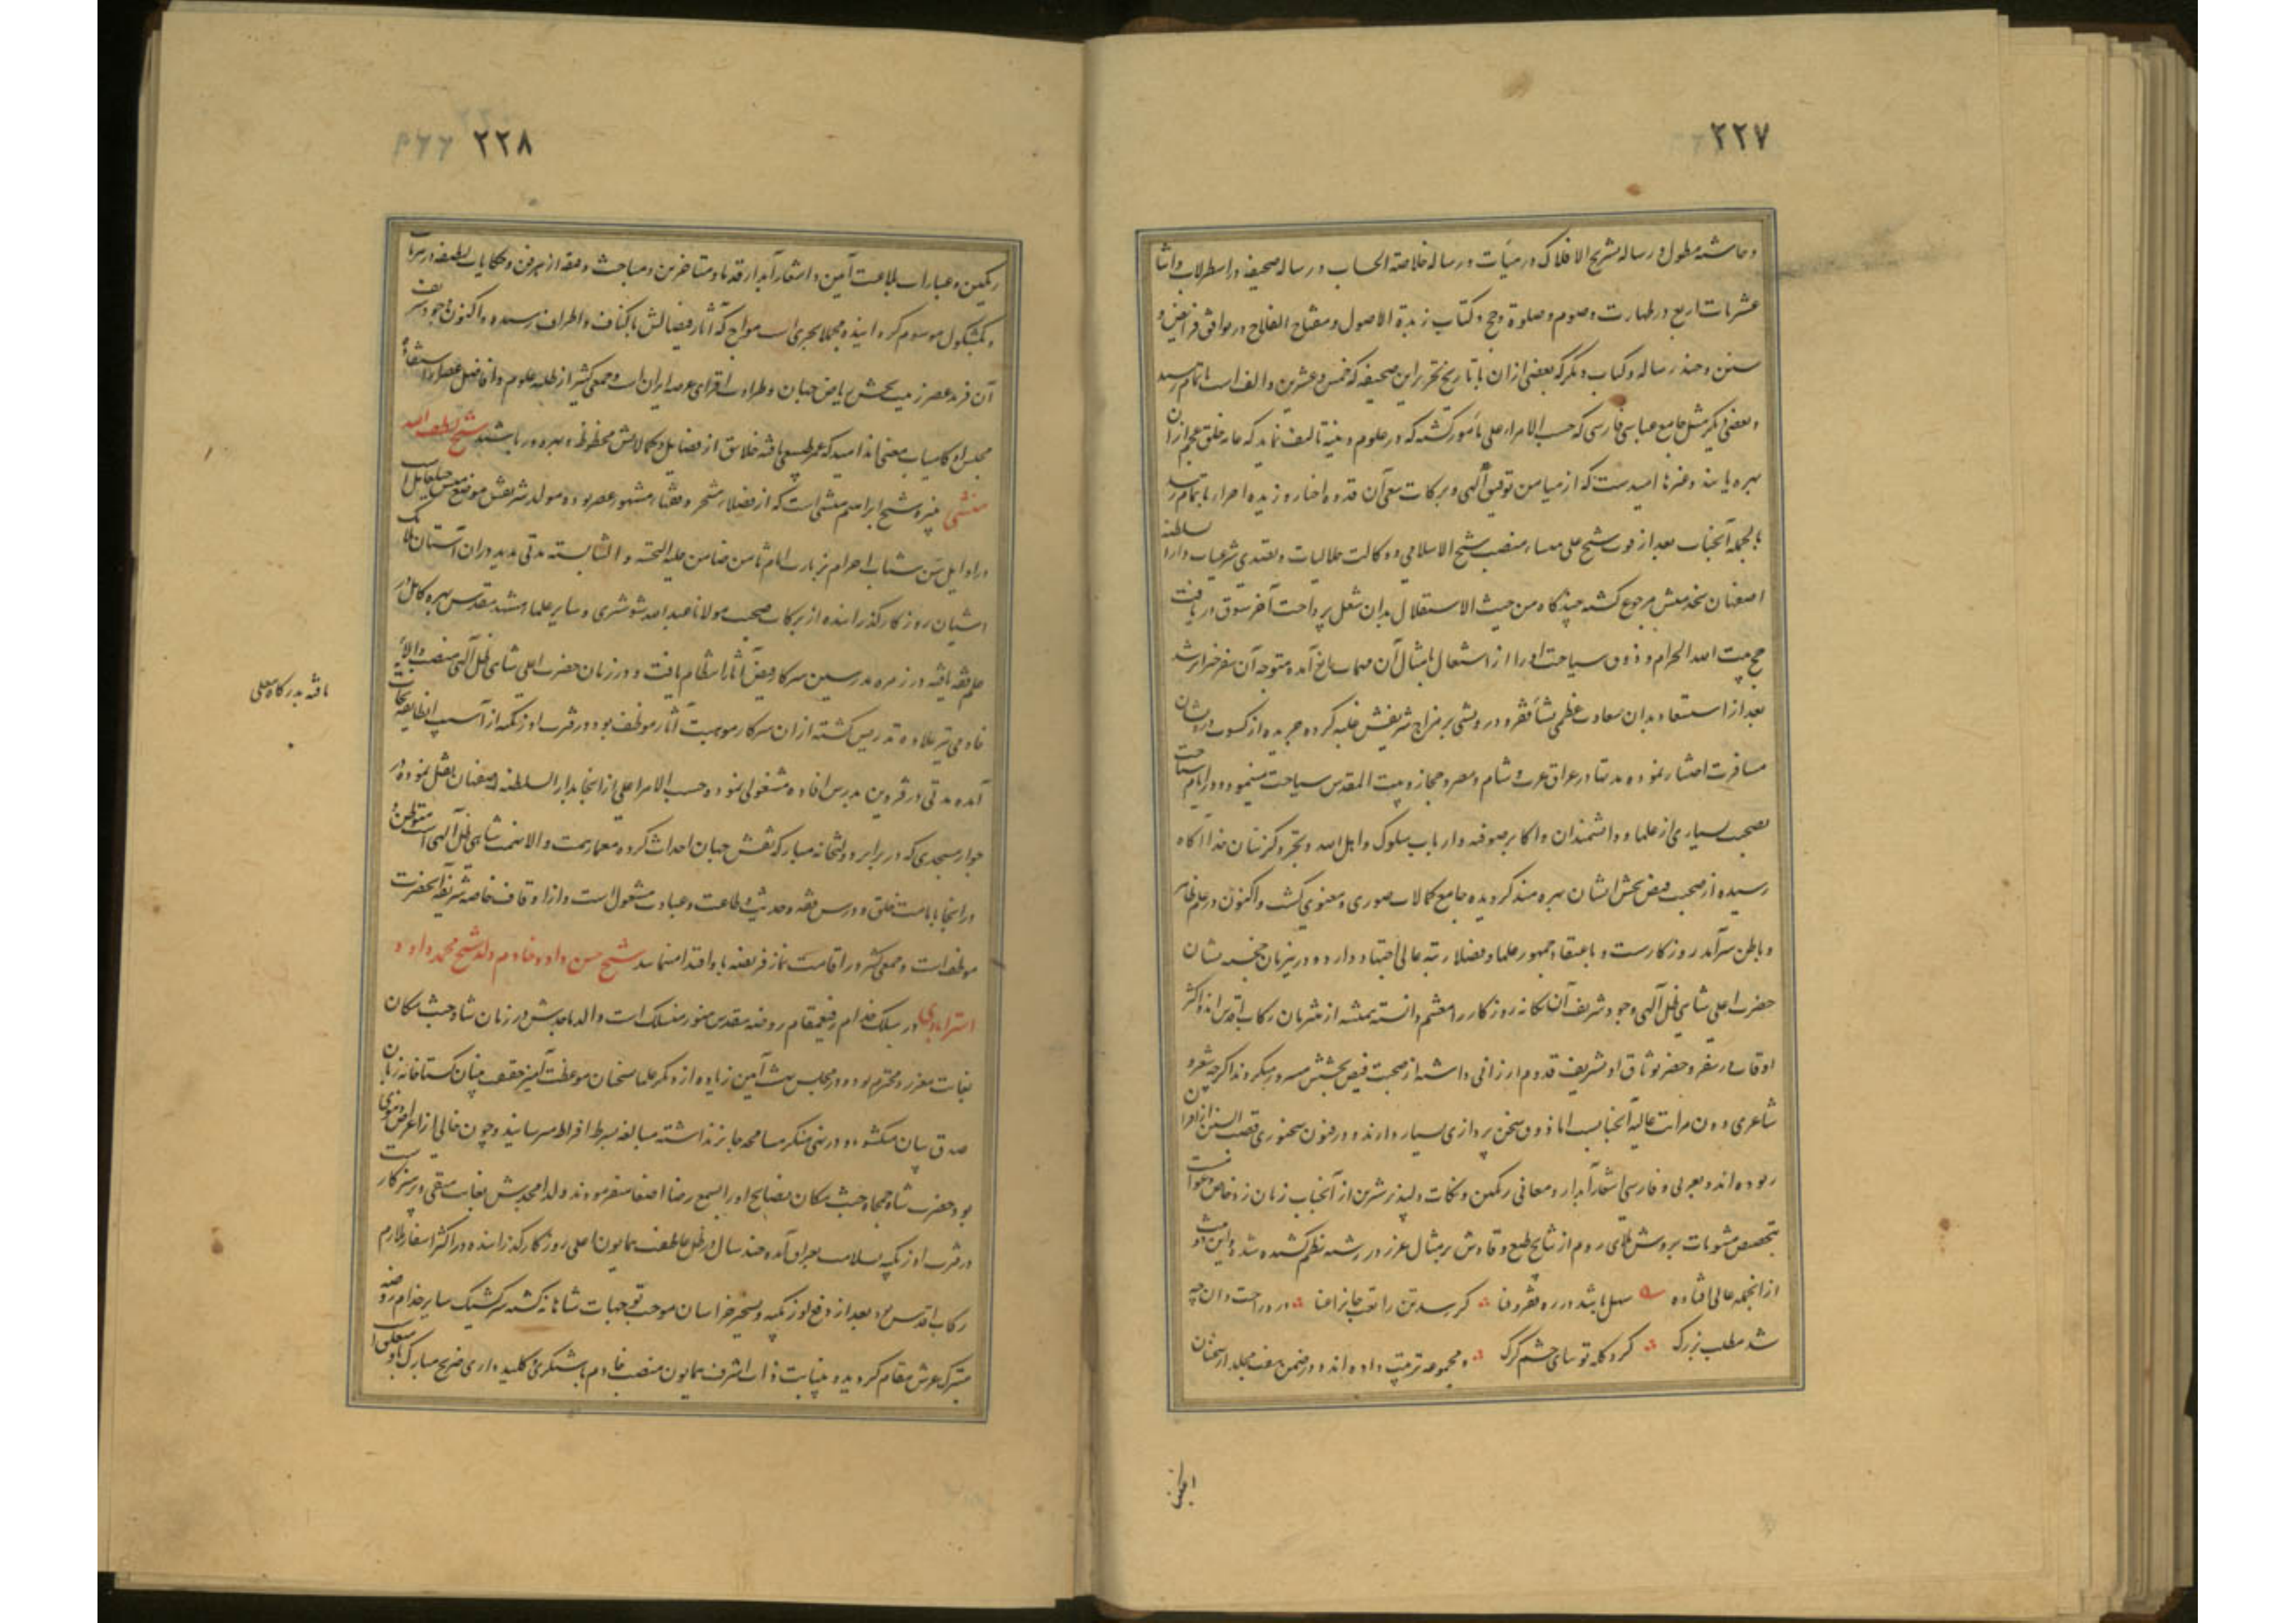 ۲۲۷
و حاشیه مطول و رساله تشریح الافلاک در هیأت و رساله خلاصة الحساب و رساله صحیفه در اسطرلاب و اثنا
عشریات اربع در طهارت و صوم و صلوة و حج و کتاب زبدة الاصول و مفتاح الفلاح در موافق فرایض و
سنن و چند رساله و کتاب دیگر که بعضی از ان تا تاریخ تحریر این صحیفه که خمس و عشرین و الف است باتمام رسیده
و بعضی دیگر مثل جامع عباسی فارسی که حسب الامر اعلی مأمور گشته که در علوم دینیه تالیف نماید که عامه خلق عجم از ان
بهره یابند و غیرها امیدست که از میامن توفیق آلهی و برکات سعی آن قدوه اخیار و زبده احرار باتمام رسد
بالجمله آنجناب بعد از فوت شیخ علی منشار منصب شیخ الاسلامی و وکالت حلالیات و تصدی شرعیات دار السلطنه
اصفهان بخدمتش مرجوع گشته چندگاه من حیث الاستقلال بدان شغل پرداخت آخر شوق دریافت
حج بیت الله الحرام و ذوق سیاحت او را از اشتغال بامثال آن مهمات مانع آمده متوجه آن سفر خیر اثر شد
بعد از استسعاد بدان سعادت عظمی نشأ فقر و درویشی بر مزاج شریفش غلبه کرده جریده از کسوت درویشان
مسافرت اختیار نموده مدتها در عراق عرب و شام و مصر و حجاز و بیت المقدس سیاحت مینمود و در ایام سیاحت
بصحبت بسیاری از علما و دانشمندان و اکابر صوفیه و ارباب سلوک و اهل الله و تجرد گزینان خدا آگاه
رسیده از صحبت فیض بخش ایشان بهره مند گردیده جامع کمالات صوری و معنوی گشت و اکنون در علم ظاهر
و باطن سرآمد روزگارست و باعتقاد جمهور علما و فضلا رتبه عالی اجتهاد دارد و درینزمان خجسته نشان
حضرت اعلی شاهی ظل آلهی وجود شریف آن یگانه روزگار را مغتنم دانسته همیشه از مقربان رکاب اقدس اند و اکثر
اوقات در سفر و حضر بوثاق او تشریف قدوم ارزانی داشته از صحبت فیض بخشش مسرور میگردند اگر چه شعر و
شاعری دون مراتب عالیه آنجنابست اما ذوق سخن پردازی بسیار دارند و در فنون سخنوری قصب السبق از اقران
ربوده اند و بعربی و فارسی اشعار آبدار و معانی رنگین و نکات دلپذیر شیرین از آنجناب زبان زد خاص و عوامست
بتخصیص مثنویات بروش ملای روم از نتایج طبع وقادش بر مثال عزیز در رشته نظم کشیده شده و این مثنوی
از انجمله عالی افتاده سهل باشد در ره فقر و فنا گر رسد تن را تعب جانرا عنا درد راحت دان چه
شد مطلب بزرگ گرد گله توتیای چشم گرگ و مجموعه ترتیب داده اند و در ضمن هفت مجلد از سخنان
۲۲۸
رنگین و عبارات بلاغت آیین و اشعار آبدار قدما و متأخرین و مباحث دقیقه از هر فن و حکایات لطیفه در هر باب
و بکشکول موسوم کرد انیده مجملا بحری است مواج که آثار فضایلش باکناف و اطراف رسیده و اکنون وجود شریف
آن فرید عصر زینت بخش ریاض جهان و طراوت افزای عرصه ایران است و جمعی کثیر از طلبه علوم و افاضل عصر از استفاده
مجلس او کامیاب معنی اند امید که عمر طبیعی یافته خلایق از فضایل و کمالاتش محظوظ و بهره ور باشند شیخ لطف الله
میسی نبیره شیخ ابراهیم میسی است که از فضلا متبحر و فقهاء مشهور عصر بوده مولد شریفش موضع میس جبل عامل است
در اوایل سن شباب احرام زیارت امام ثامن ضامن علیه التحیه و الثنا بسته مدتی مدید در ان آستان ملایک
آشیان روزگار گذرانیده از برکات صحبت مولانا عبد الله شوشتری و سایر علما مشهد مقدس بهره کامل از
علم فقه یافته در زمره مدرسین سرکار فیض آثار انتظام یافت و در زمان حضرت اعلی شاهی ظل آلهی منصب والای
خادمی نیز علاوه تدریس گشته از ان سرکار موهبت آثار موظف بود و در فترت اوزبکیه از آسیب انطایفه نجات
یافته بدرگاه معلی
آمده مدتی در قزوین بدرس افاده مشغولی نمود و حسب الامر اعلی از انجا بدار السلطنه اصفهان نقل نموده در
جوار مسجدی که در برابر دولتخانه مبارکه نقش جهان احداث کرده معمار همت والا نهمت شاهی ظل آلهی است متوطن و
در انجا بامامت خلق و درس فقه و حدیث و طاعت و عبادت مشغول است و از اوقاف خاصه شریفه آنحضرت
موظف است و جمعی کثیر در اقامت نماز فریضه باو اقتدا مینمایند شیخ حسن داود خادم ولد شیخ محمد داود
استرابادی در سلک خدام رفیع مقام روضه مقدس منور منسلک است والد ماجدش در زمان شاه جنت مکان
بغایت معزز و محترم بوده در مجلس بهشت آیین زیاده از دیگر علما سخنان موعظت آمیز حقیقت بنیان گستاخانه زبان
صدق بیان میگشوده و در نهی منکر مسامحه جایز نداشته مبالغه بسرحد افراط میرسانید و چون خالی از اغراض دنیوی
بود حضرت شاه جمجاه جنت مکان نصایح او را بسمع رضا اصغا میفرمودند ولد امجدش بغایت متقی و پرهیزکار است
در فترت اوزبکیه بسلامت بعراق آمده چند سال در ظل عاطفت همایون اعلی روزگار گذرانیده در اکثر اسفار ملازم
رکاب اقدس بود بعد از دفع اوزبکیه و تسخیر خراسان موجب توجهات شاهانه گشته سرکشیک سایر خدام روضه
متبرک عرش مقام گردید و بنیابت ذات اشرف همایون منصب خادم باشیگری و کلید داری ضریح مبارک باو متعلق است